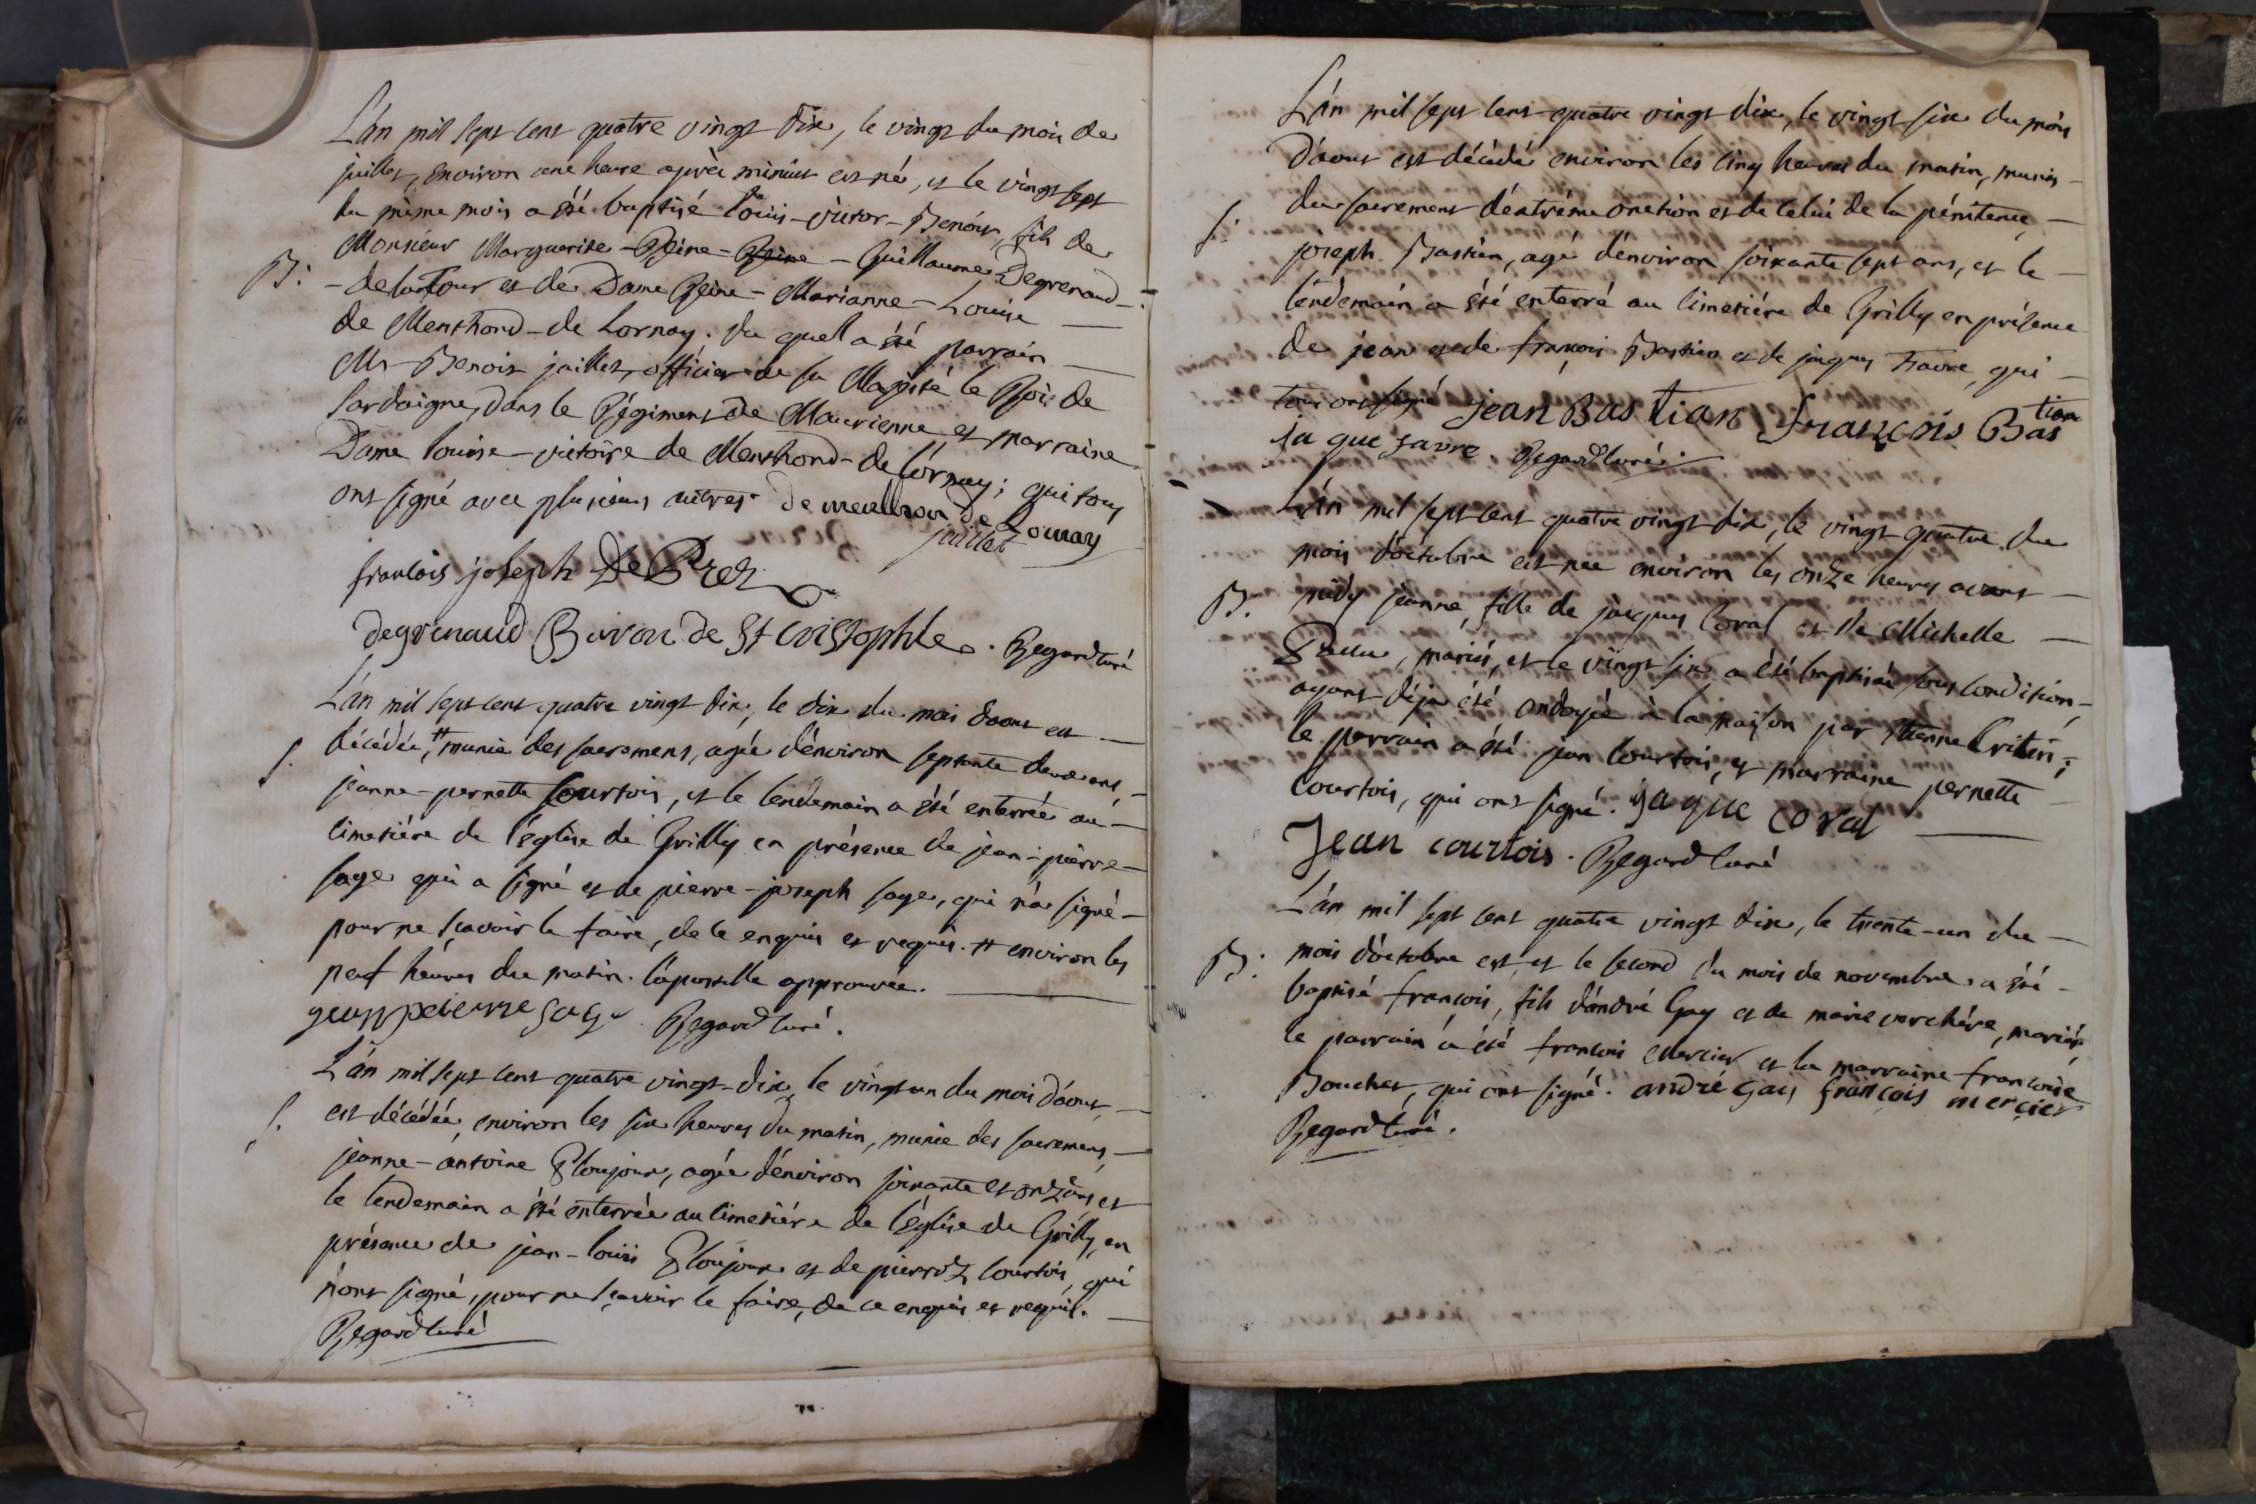 L'án mil sept cent quatre vingt dix, le vingt du mois de
juillet, environ une heure après minuit est né, et le vingt sept
du même mois a été baptisé Loüis-victor-Benoit, fils de
Monsieur Marguerite-Reine-Reine-Guillaume Degrenaud-
B: -delatour et de Dame Reine-Marianne-Louise
de Menthond-de Lornay. du quel a été parrain
Mr Benoit jaillet, officier de sa Majesté le Roi de
Sardaigne, dans le Régiment de Maurienne et marraine
Dame louise-victoire de Menthond-de Lornay; qui tous
ont signé avec plusieurs autres. De menthon de Lornay
jaillet
francois joseph De Prez
degrenaud Baron de St Cristophle. Regard curé
L'án mil sept cent quatre vingt dix, le dix du mois d'aout est
S. décédée, # munie des sacremens, agée d'énviron septante deux ans,
jeanne-pernette Courtois, et le lendemain a été enterrée au
cimetiére de l'église de Grilly en présence de jean-pierre
sage qui a signé et de pierre-joseph sage, qui n'a signé
pour ne sçavoir le faire, de ce enquis et requis. # environ les
neuf heures du matin. l'apostille approuvée.
jean peierre sage Regard curé.
L'án mil sept cent quatre vingt-dix, le vingt un du mois d'aout,
S. est décédée, environ les six heures du matin, munie des sacremens,
jeanne-antoine Ploujoux, agée d'énviron soixante et onze ans, et
le lendemain a été enterrée au cimetiére de l'église de Grilly, en
présence de jean-louis Ploujoux et de pierre courtois, qui
n'ont signé, pour ne sçavoir le faire, de ce enquis et requis.
Regard curé
L'án mil sept cent quatre vingt dix, le vingt six du mois
D'aout est décédé environ les cinq heures du matin, muni
du sacrement d'extréme onction et de celui de la pénitence,
S: joseph Bastian, agé d'énviron soixante sept ans, et le
lendemain a été enterré au cimetiére de Grilly en présence
de jean et de françois Bastian et de jaques Favre, qui
tous ont signé jean Bastian françois Bastian
jaque favre Regard curé.
L'án mil sept cent quatre vingt dix, le vingt quatre du
mois d'octobre est née environ les onze heures avant
B. midy jeanne, fille de jacques Coral et de Michelle
mariés, et le vingt six a été baptisée sous condition,
ayant déja été ondoyée à la maison par Etienne
le parrain a été jean Courtois, et marraine pernette
Courtois, qui ont signé. jaque coral
Jean courtois. Regard curé
L'án mil sept cent quatre vingt dix, le trente-un du
B: mois d'octobre est, et le second du mois de novembre a été
baptisé francois, fils d'andré Gay et de marie verchére, mariés,
le parrain a été francois mercier et la marraine francoise
Bouchet, qui ont signé. andré Gay françois mercier
Regard curé.